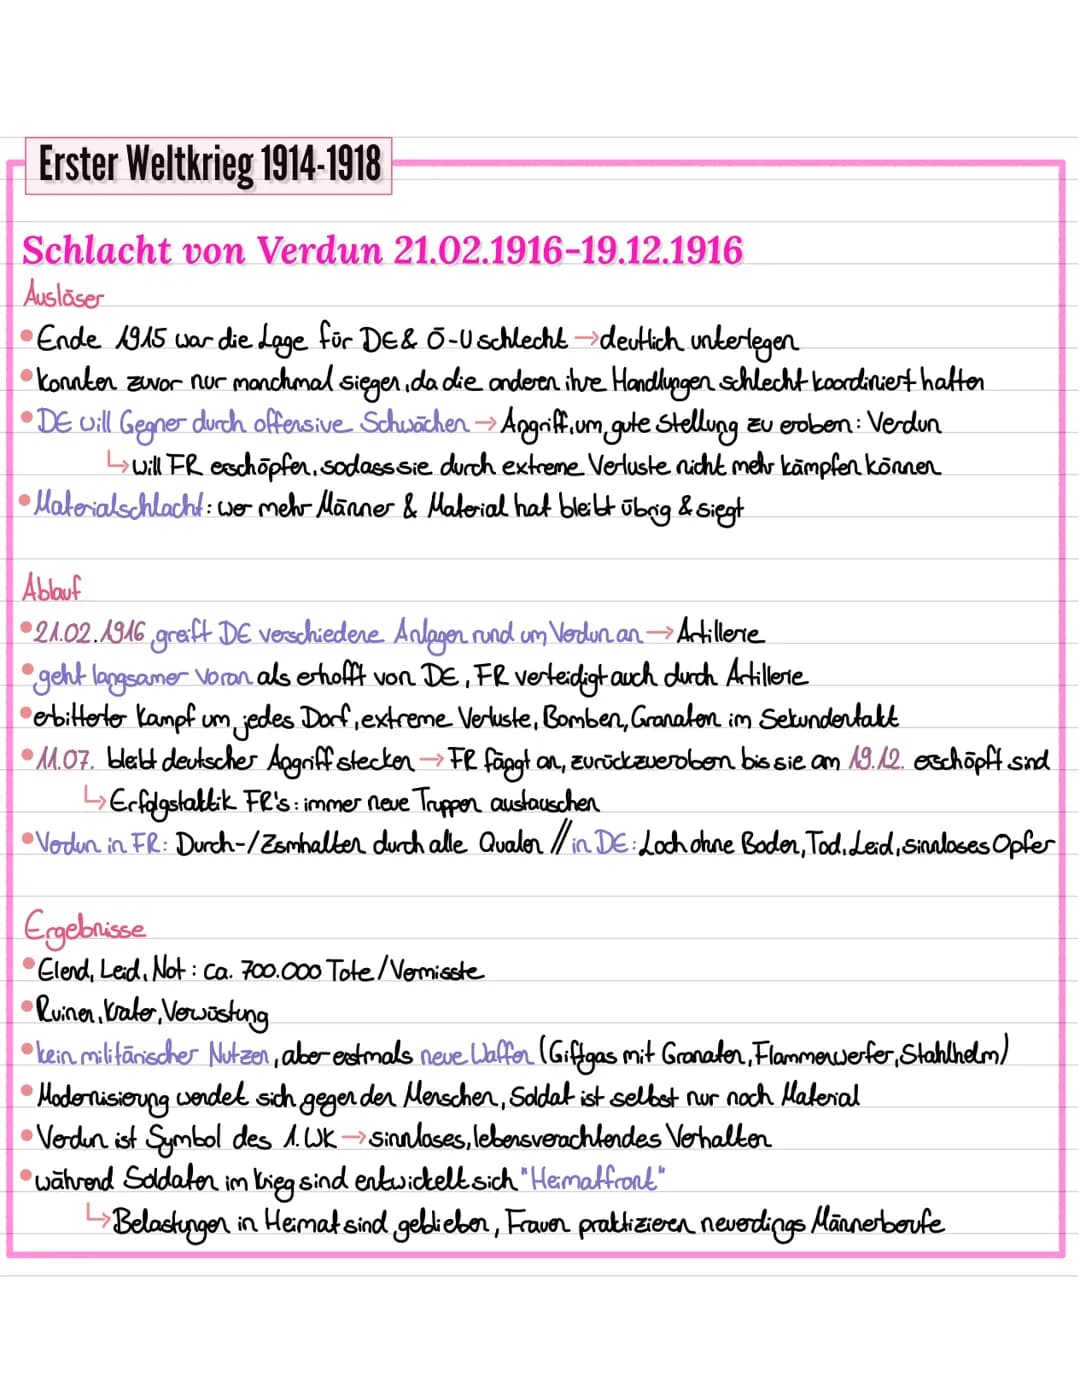 Erster Weltkrieg 1914-1918
Schlacht von Verdun 21.02.1916-19.12.1916
Auslöser
• Ende 1915 war die Lage für DE & Ö-U schlecht → deutlich unterlegen
• konnten zuvor nur manchmal siegen, da die anderen ihre Handlungen schlecht koordiniert hatten
• DE will Gegner durch offensive Schwächen → Angriff, um gute Stellung zu erobern: Verdun
↳ will FR erschöpfen, sodass sie durch extreme Verluste nicht mehr kämpfen können
• Materialschlacht: wer mehr Männer & Material hat bleibt übrig & siegt
Ablauf
• 21.02.1916 greift DE verschiedene Anlagen rund um Verdun an → Artillerie
• geht langsamer voran als erhofft von DE, FR verteidigt auch durch Artillerie
• erbitterter Kampf um jedes Dorf, extreme Verluste, Bomben, Granaten im Sekundentakt
• 11.07. bleibt deutscher Angriff stecken → FR fängt an, zurückzuerobern bis sie am 19.12. erschöpft sind
↳ Erfolgstaktik FR's: immer neue Truppen austauschen
• Verdun in FR: Durch-/Zsmhalten durch alle Qualen // in DE: Loch ohne Boden, Tod, Leid, sinnloses Opfer
Ergebnisse
• Elend, Leid, Not: ca. 700.000 Tote/Vermisste
• Ruinen, Krater, Verwüstung
• kein militärischer Nutzen, aber erstmals neue Waffen (Giftgas mit Granaten, Flammenwerfer, Stahlhelm)
• Modernisierung wendet sich gegen den Menschen, Soldat ist selbst nur noch Material
• Verdun ist Symbol des 1. WK → sinnloses, lebensverachtendes Verhalten
• während Soldaten im Krieg sind entwickelt sich "Heimatfront"
↳ Belastungen in Heimat sind geblieben, Frauen praktizieren neuerdings Männerberufe